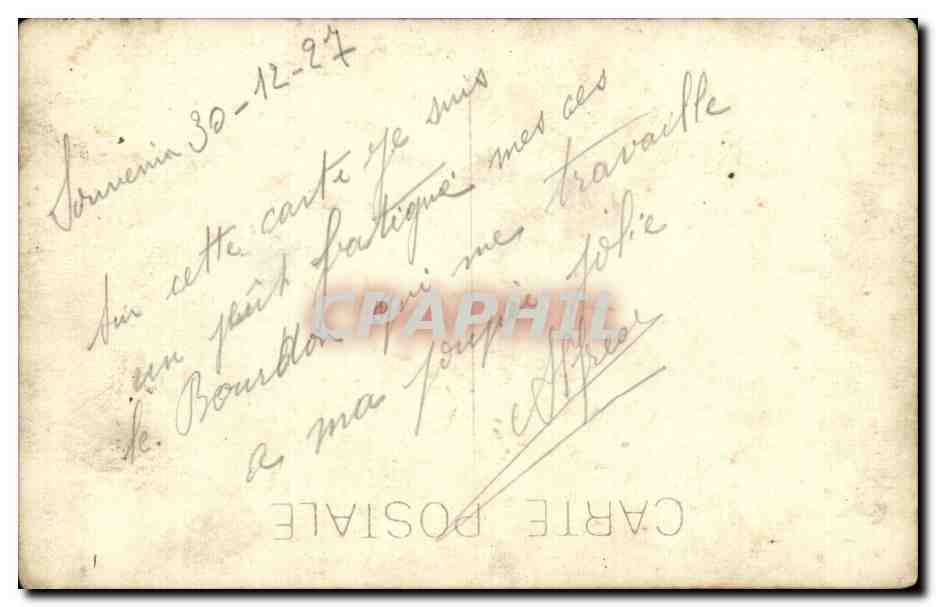 Souvenir 30-12-27
sur cette carte je suis
un peût fatigué mes ces
le Bourdon qui me travaille
a ma poupé jolie
Alfred
CPAPHIL
CARTE POSTALE